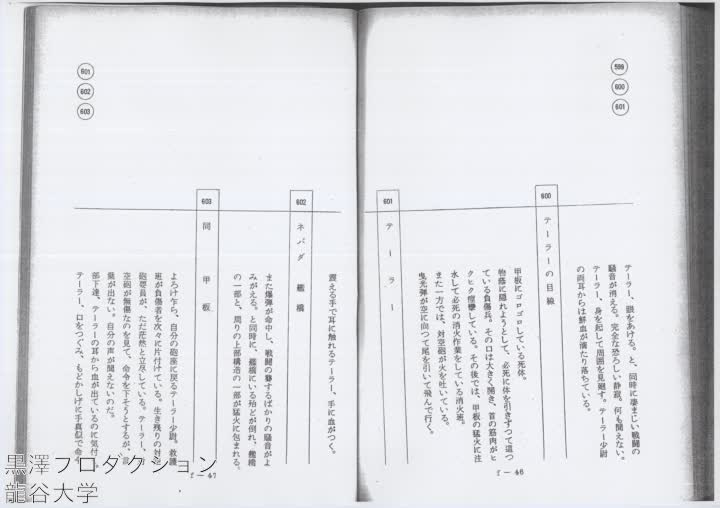 599
600
601
テーラー、眼をあける。と、同時に凄まじい戦闘の
騒音が消える。完全な恐ろしい静寂。何も聞えない。
テーラー、身を起して周囲を見廻す。テーラー少尉
の両耳からは鮮血が滴たり落ちている。
600 テーラーの目線
甲板にゴロゴロしている死体。
物蔭に隠れようとして、必死に体を引きずって這つ
ている負傷兵。その口は大きく開き、首の筋肉がヒ
クヒク痙攣している。その後では、甲板の猛火に注
水して必死の消火作業をしている消火班。
また一方では、対空砲が火を吐いている。
曳光弾が空に向つて尾を引いて飛んで行く。
601 テーラー
f－46
601
602
603
震える手で耳に触れるテーラー、手に血がつく。
602 ネバダ 艦橋
また爆弾が命中し、戦闘の聾するばかりの騒音がよ
みがえる。と同時に、艦橋にいる殆どが倒れ、艦橋
の一部と、周りの上部構造の一部が猛火に包まれる。
603 同 甲板
よろけ乍ら、自分の砲座に戻るテーラー少尉。救護
班が負傷者を次々に片付けている。生き残りの対空
砲要員が、ただ茫然と立尽している。テーラー、
空砲が無傷なのを見て、命令を下そうとするが、言
葉が出ない。自分の声が聞えないのだ。
部下達、テーラーの耳から血が出ているのに気付
テーラー、口をつぐみ、もどかしげに手真似で命令
f－47
黒澤プロダクション
龍谷大学